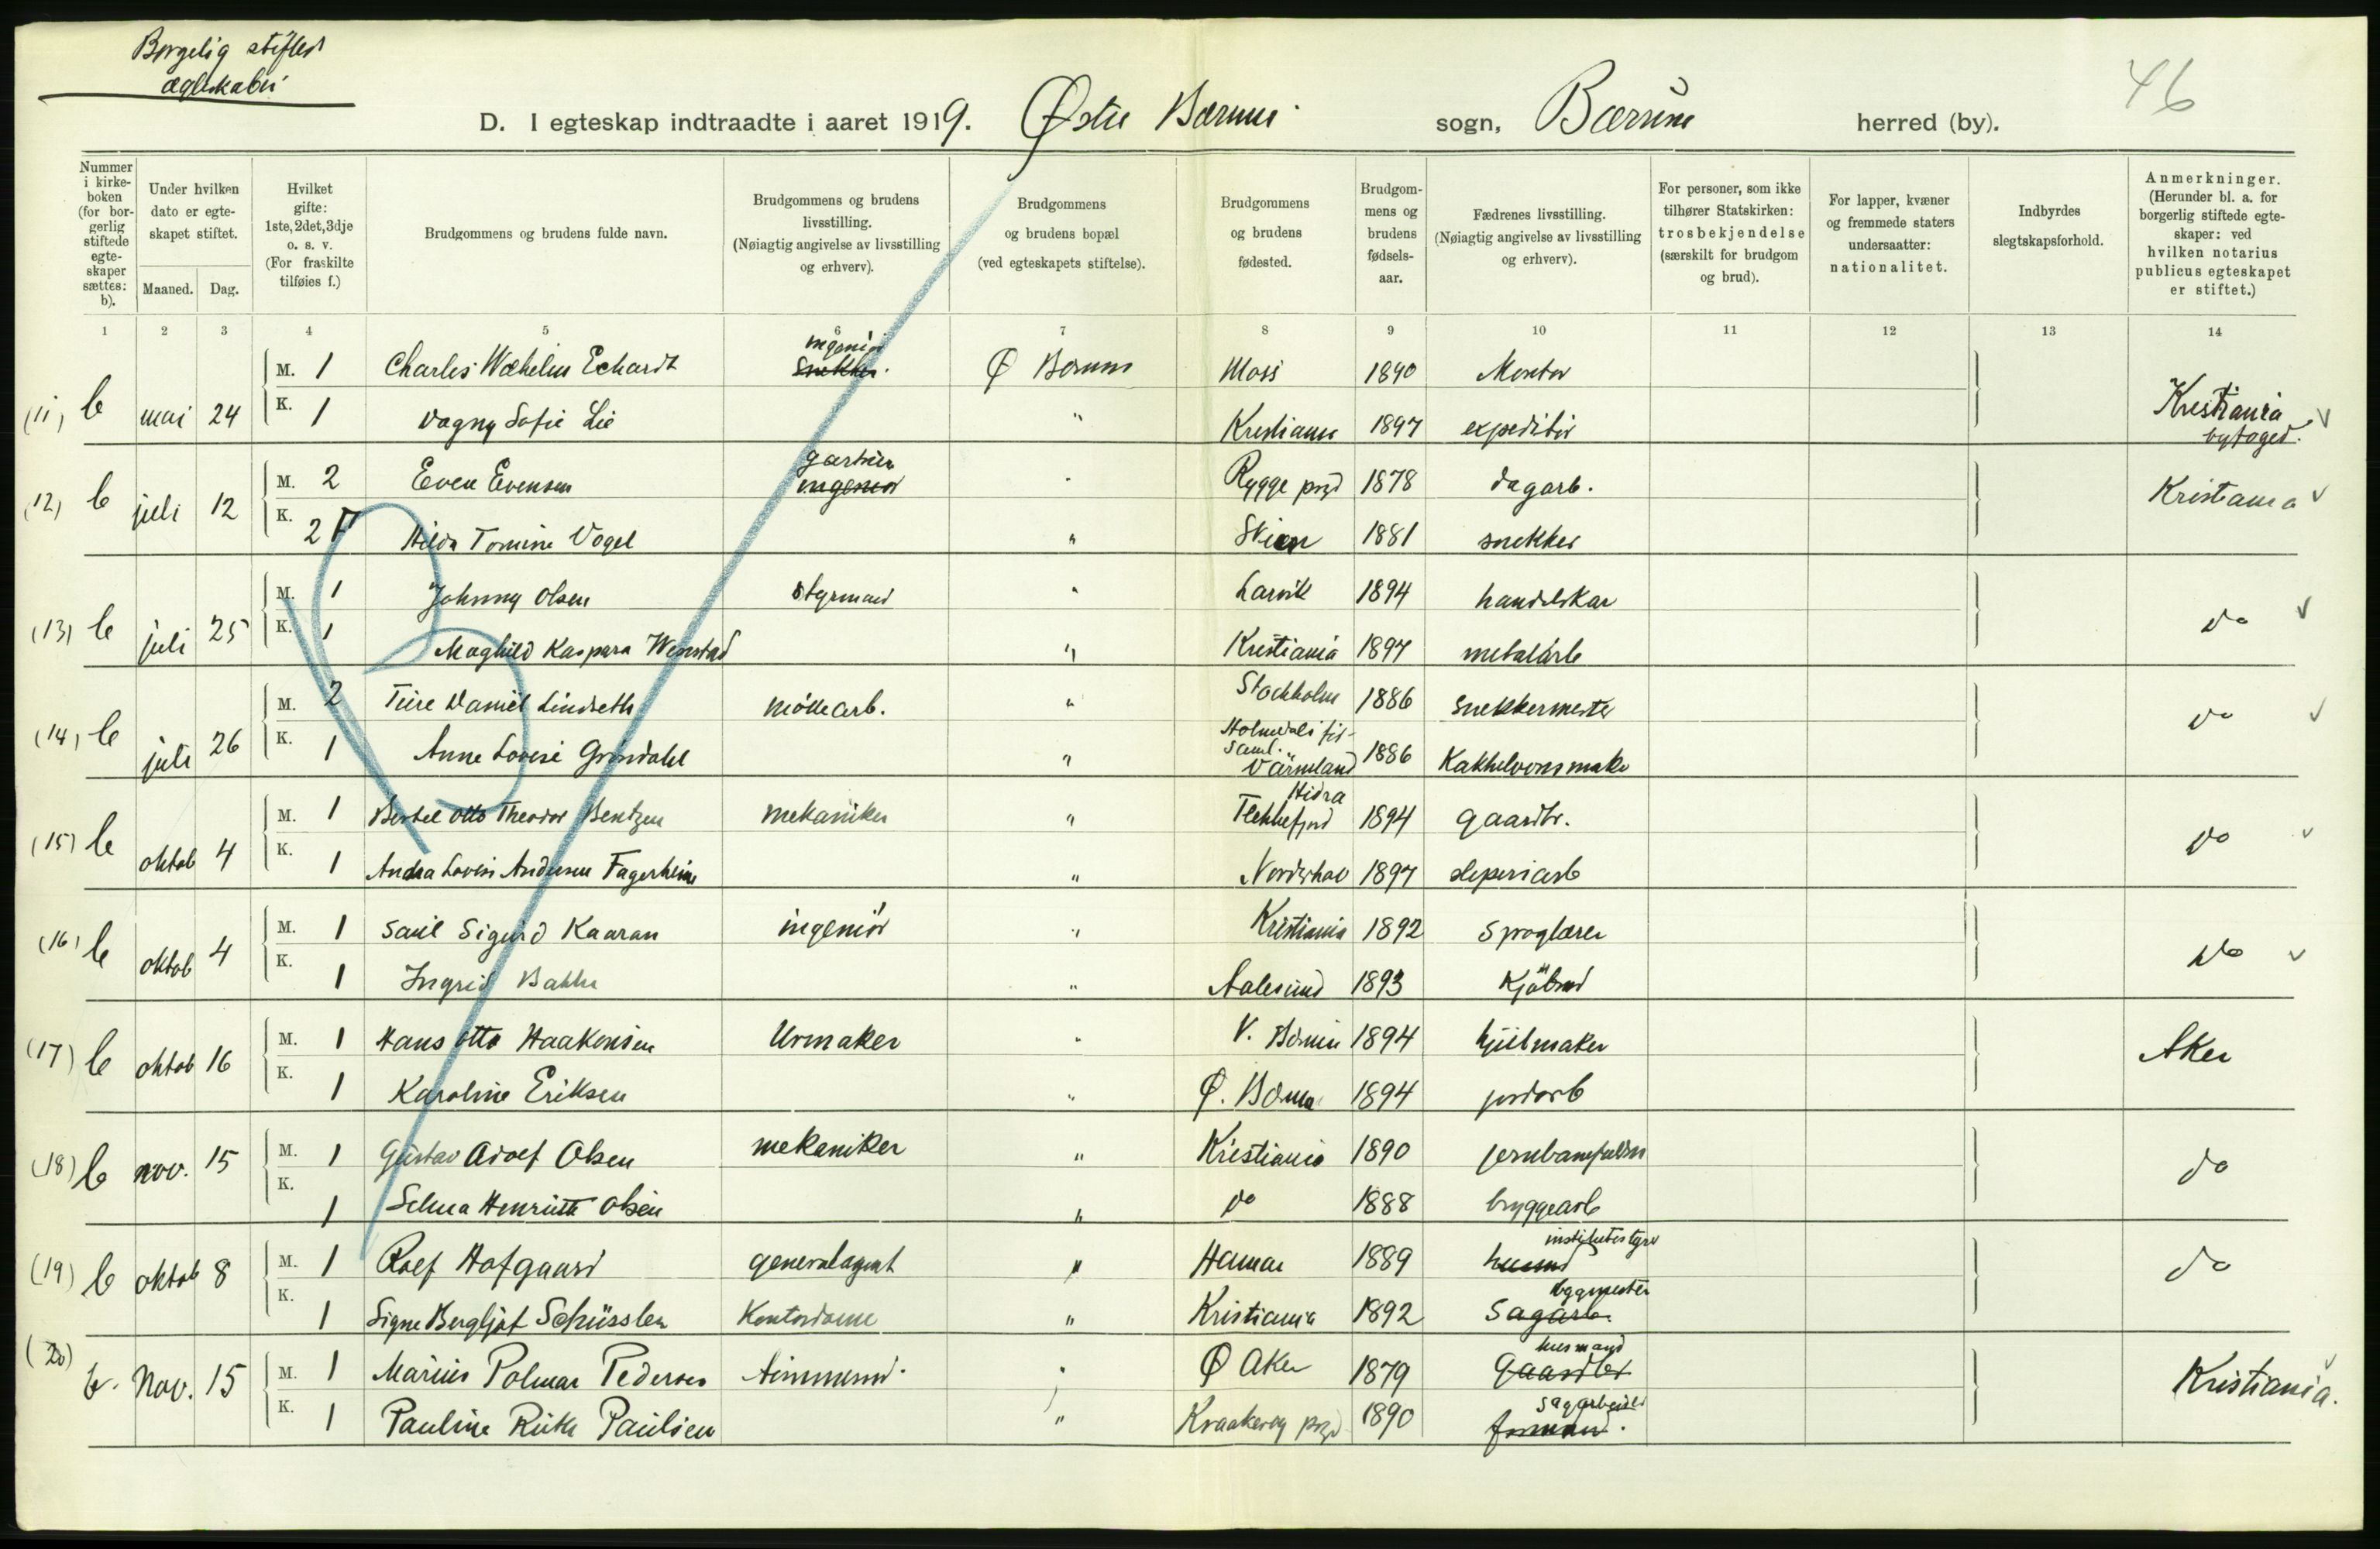 Borgelig stiftet
egteskaber
46
D. I egteskap indtraadte i aaret 1919. Østre Bærum sogn, Bærum herred (by).
Nummer i kirkeboken (for borgerlig stiftede egteskaper sættes: b).
Under hvilken dato er egteskapet stiftet.
Maaned. Dag.
Hvilket gifte: 1ste, 2det, 3dje o. s. v. (For fraskilte tilføies f.)
Brudgommens og brudens fulde navn.
Brudgommens og brudens livsstilling. (Nøiagtig angivelse av livsstilling og erhverv).
Brudgommens og brudens bopæl (ved egteskapets stiftelse).
Brudgommens og brudens fødested.
Brudgommens og brudens fødselsaar.
Fædrenes livsstilling. (Nøiagtig angivelse av livsstilling og erhverv).
For personer, som ikke tilhører Statskirken: trosbekjendelse (særskilt for brudgom og brud).
For lapper, kvæner og fremmede staters undersaatter: nationalitet.
Indbyrdes slegtskapsforhold.
Anmerkninger. (Herunder bl. a. for borgerlig stiftede egteskaper: ved hvilken notarius publicus egteskapet er stiftet.)
1 2 3 4 5 6 7 8 9 10 11 12 13 14
M. 1 Charles Wilhelm Echardt ingeniør snekker. Ø Bærum Moss 1890 Montør
(11) b mai 24 K. 1 Dagny Sofie Lie " Kristiania 1897 expeditør Kristiania byfoged.
M. 2 Even Evensen gartner ingeniør " Rygge prgd 1878 dagarb.
(12) b juli 12 K. 2 F Hilda Tomine Vogel " Skien 1881 snekker Kristiania
M. 1 Johnny Olsen styrmand " Larvik 1894 handelskar
(13) b juli 25 K. 1 Maghild Kaspara " Kristiania 1897 metalarb do
M. 2 Ture Daniel Lindseth møllearb. " Stockholm 1886 snekkermester
(14) b juli 26 K. 1 Anne Lovise Grindahl " Värmland 1886 Kakkelovnsmaker do
M. 1 Bertel Otto Theodor Bentzen mekaniker " Hidra Flekkefjord 1894 gaardbr.
(15) b oktob 4 K. 1 Andrea Lovise Andersen Fagerheim " Norderhov 1897 sliperiarb do
M. 1 Saul Sigurd Kaaran ingeniør " Kristiania 1892 Sproglærer
(16) b oktob 4 K. 1 Ingrid Bakke " Aalesund 1893 Kjøbmd do
M. 1 Hans Otto Haakonsen Urmaker " V. Bærum 1894 hjulmaker
(17) b oktob 16 K. 1 Karoline Eriksen " Ø. Bærum 1894 jordarb Aker
M. 1 Gustav Adolf Olsen mekaniker " Kristiania 1890
(18) b nov. 15 K. 1 Selma Henriette Olsen " do 1888 bryggearb do
M. 1 Rolf Hofgaard generalagent " Hamar 1889 institutbestyrer husmd
(19) b oktob 8 K. 1 Signe Bergljot Schüssler Kontordame " Kristiania 1892 byggmester Sagarb. do
M. 1 Marius Polmar Pedersen tømmermd. " Ø Aker 1879 husmand Gaardbr
(20) b. Nov. 15 K. 1 Pauline Ruth Paulsen " Kraakerøy prgd 1890 sagarbeider formand. Kristiania.